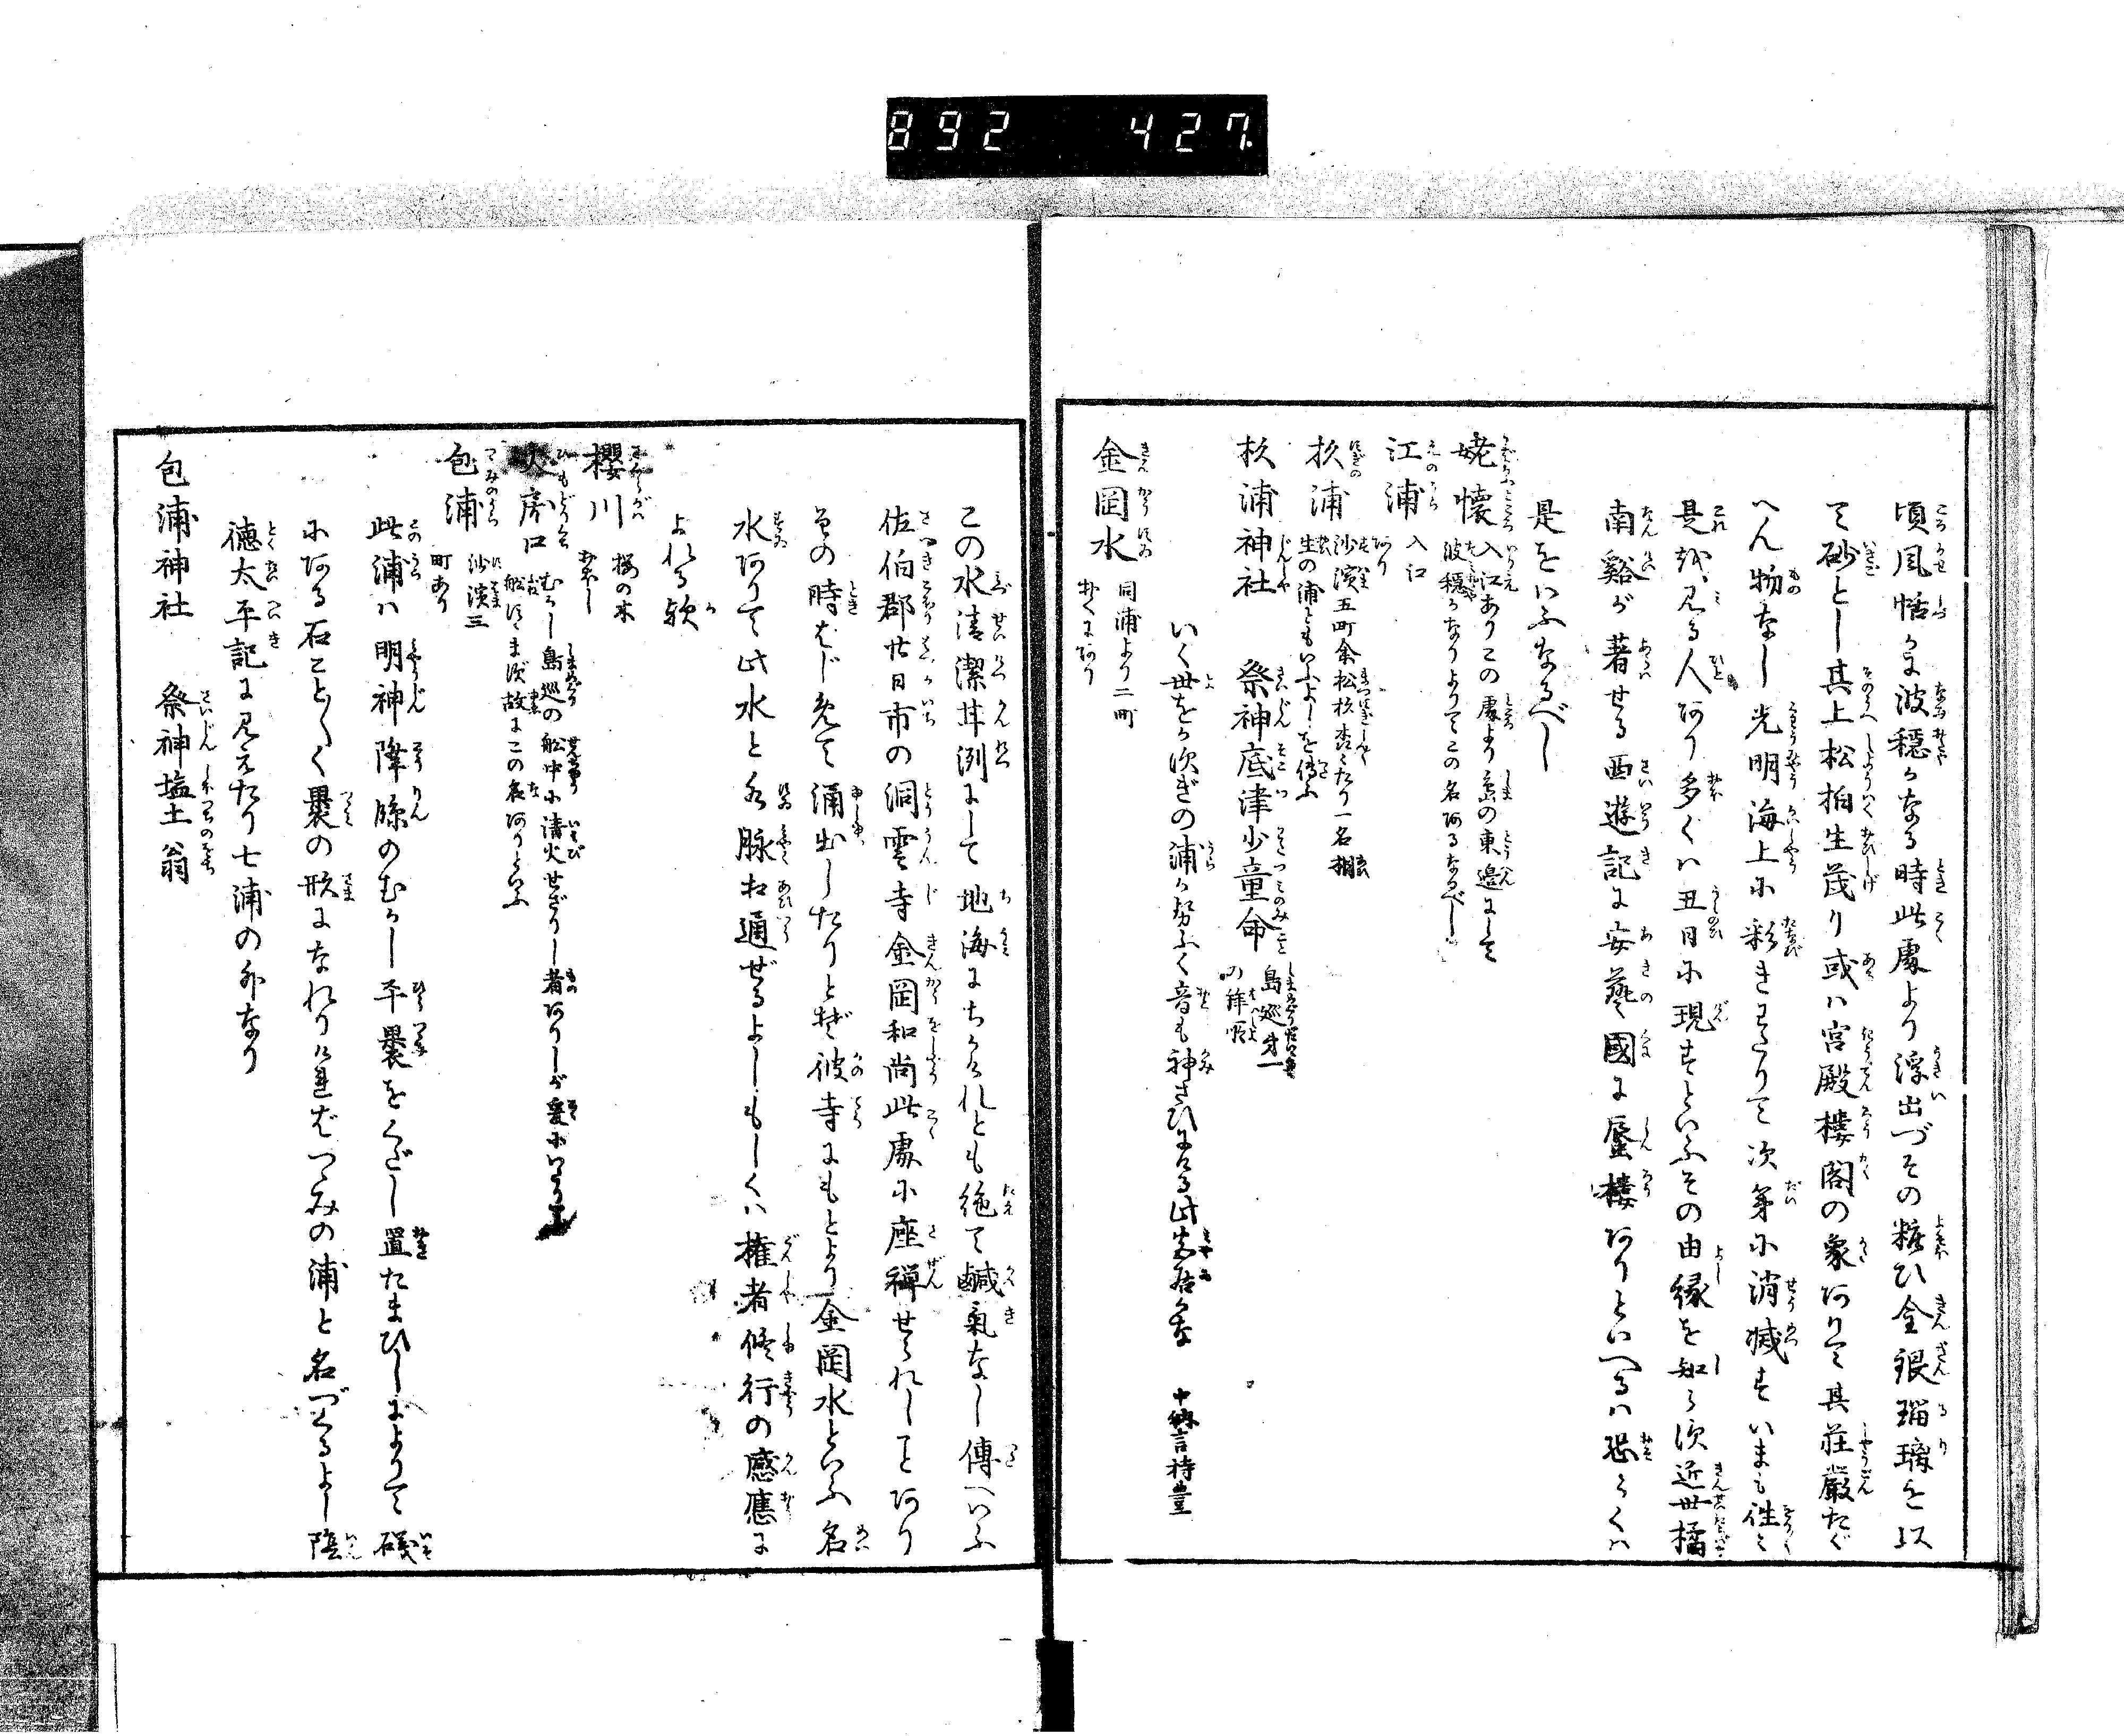 892 427.
頃風恬かに波穏かなる時此處より浮出づその粧ひ金銀瑠璃を以
て砂とし其上松柏生茂り或ハ宮殿樓閣の象ありて其荘嚴たぐ
へん物なし光明海上に彩きわたりて次第に消滅すいまも往々
是を見る人あり多くハ丑日に現ずといふその由縁を知らず近世橘
南谿が著せる西遊記に安藝國に蜃樓ありといへるハ恐らくハ
是をいふなるべし
姥懐 入江ありこの處より島の東邉にして
波穏かなりよりてこの名あるなるべし
江浦 入江
あり
杉浦 沙濱五町余松杉森々たり一名
生の浦ともいふよしを傳ふ
杉浦神社 祭神底津少童命 島巡第一
の拝所
いく世をか次ぎの浦か勢ふく音も神さびにける此
中納言持豊
金岡水 同浦より二町
おくにあり
この水清潔甘冽にして地海にちかけれとも絶て鹹氣なし傳へいふ
佐伯郡廿日市の洞雲寺金岡和尚此處に座禅せられしことあり
その時はじめて涌出したりとぞ彼寺にもとより金岡水といふ名
水ありて此水と水脉相通ぜるよしもしくハ権者修行の感應に
よれる歟
櫻川 桜の木
おほし
火焼口 むかし島巡の舩中に清火せざりし者ありしが爰にいたりて
舩はしまず故にこの名ありといふ
包浦 沙濱三
町あり
此浦ハ明神降臨のむかし平裹をくだし置たまひしによりて礒
にある石こと〱く裹の形になれりさればつゝみの浦と名づくるよし陰
徳太平記に見えたり七浦の外なり
包浦神社 祭神塩土翁